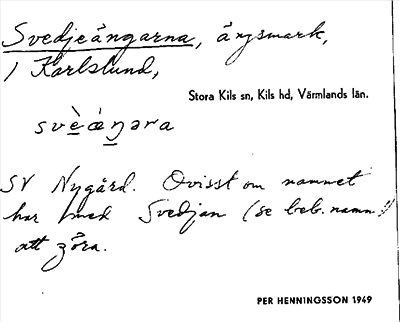 Svedjeängarna, ängsmark,
i Karlslund,
Stora Kils sn, Kils hd, Värmlands län.
svèǽŋəra
SV Nygård. Ovisst om namnet
har med Svedjan (se beb.namn!)
att göra.
PER HENNINGSSON 1949